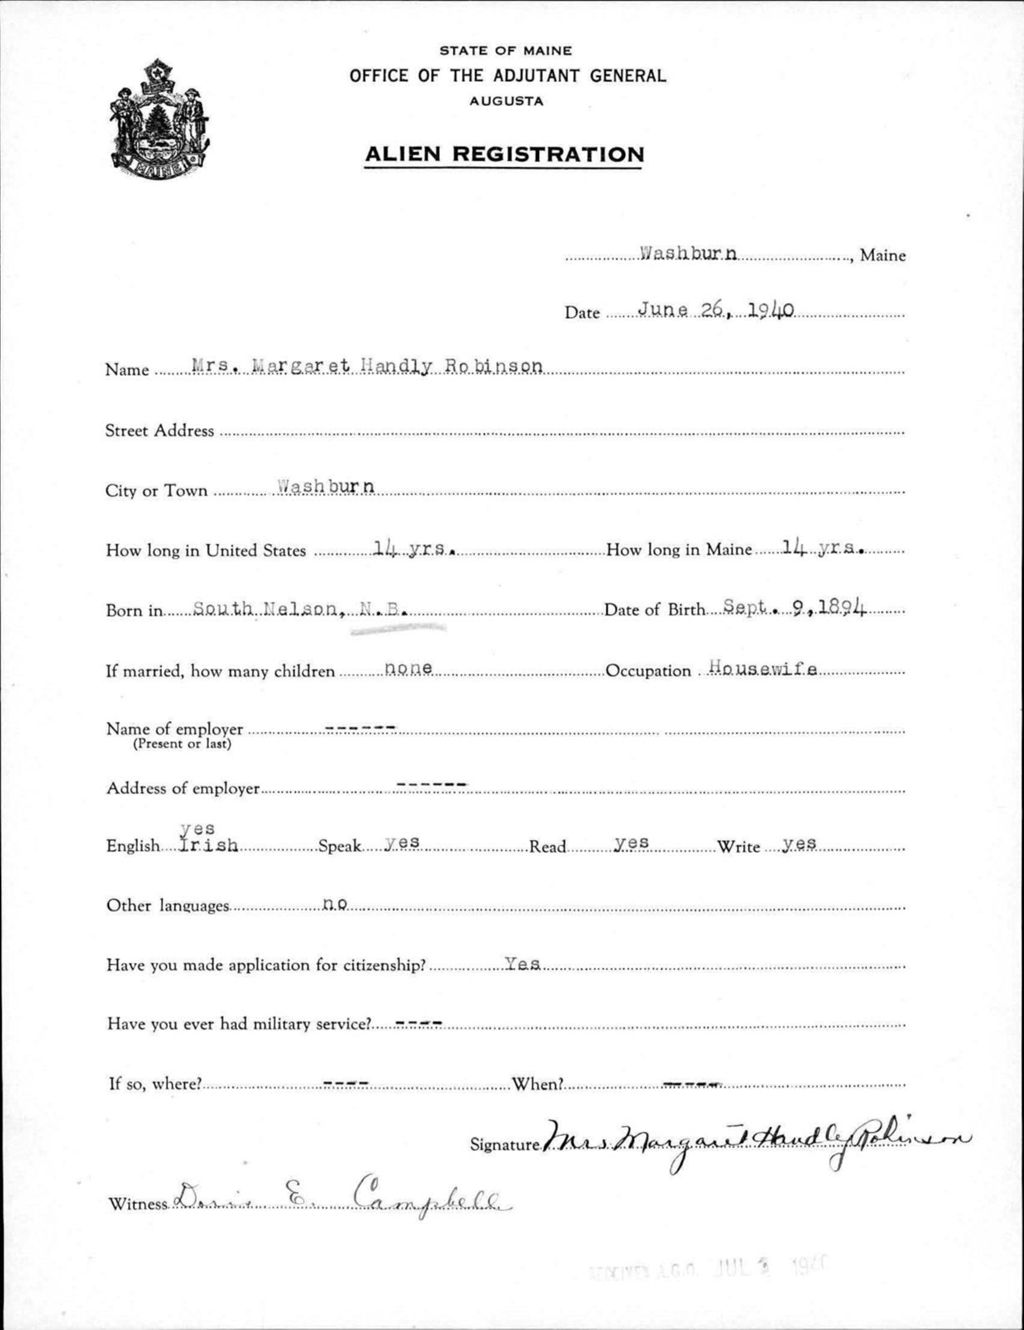 STATE OF MAINE
OFFICE OF THE ADJUTANT GENERAL
AUGUSTA
ALIEN REGISTRATION
MAINE
Washburn, Maine
Date June 26, 1940
Name Mrs. Margaret Handly Robinson
Street Address
City or Town Washburn
How long in United States 14 yrs. How long in Maine 14 yrs.
Born in South Nelson, N.B. Date of Birth Sept. 9, 1894
If married, how many children none Occupation Housewife
Name of employer ------
(Present or last)
Address of employer ------
yes
English Irish Speak yes Read yes Write yes
Other languages no
Have you made application for citizenship? Yes
Have you ever had military service? ----
If so, where? ---- When? -----
Signature Mrs Margaret Handley Robinson
Witness Doris E. Campbell
A.G.O. JUL 1940